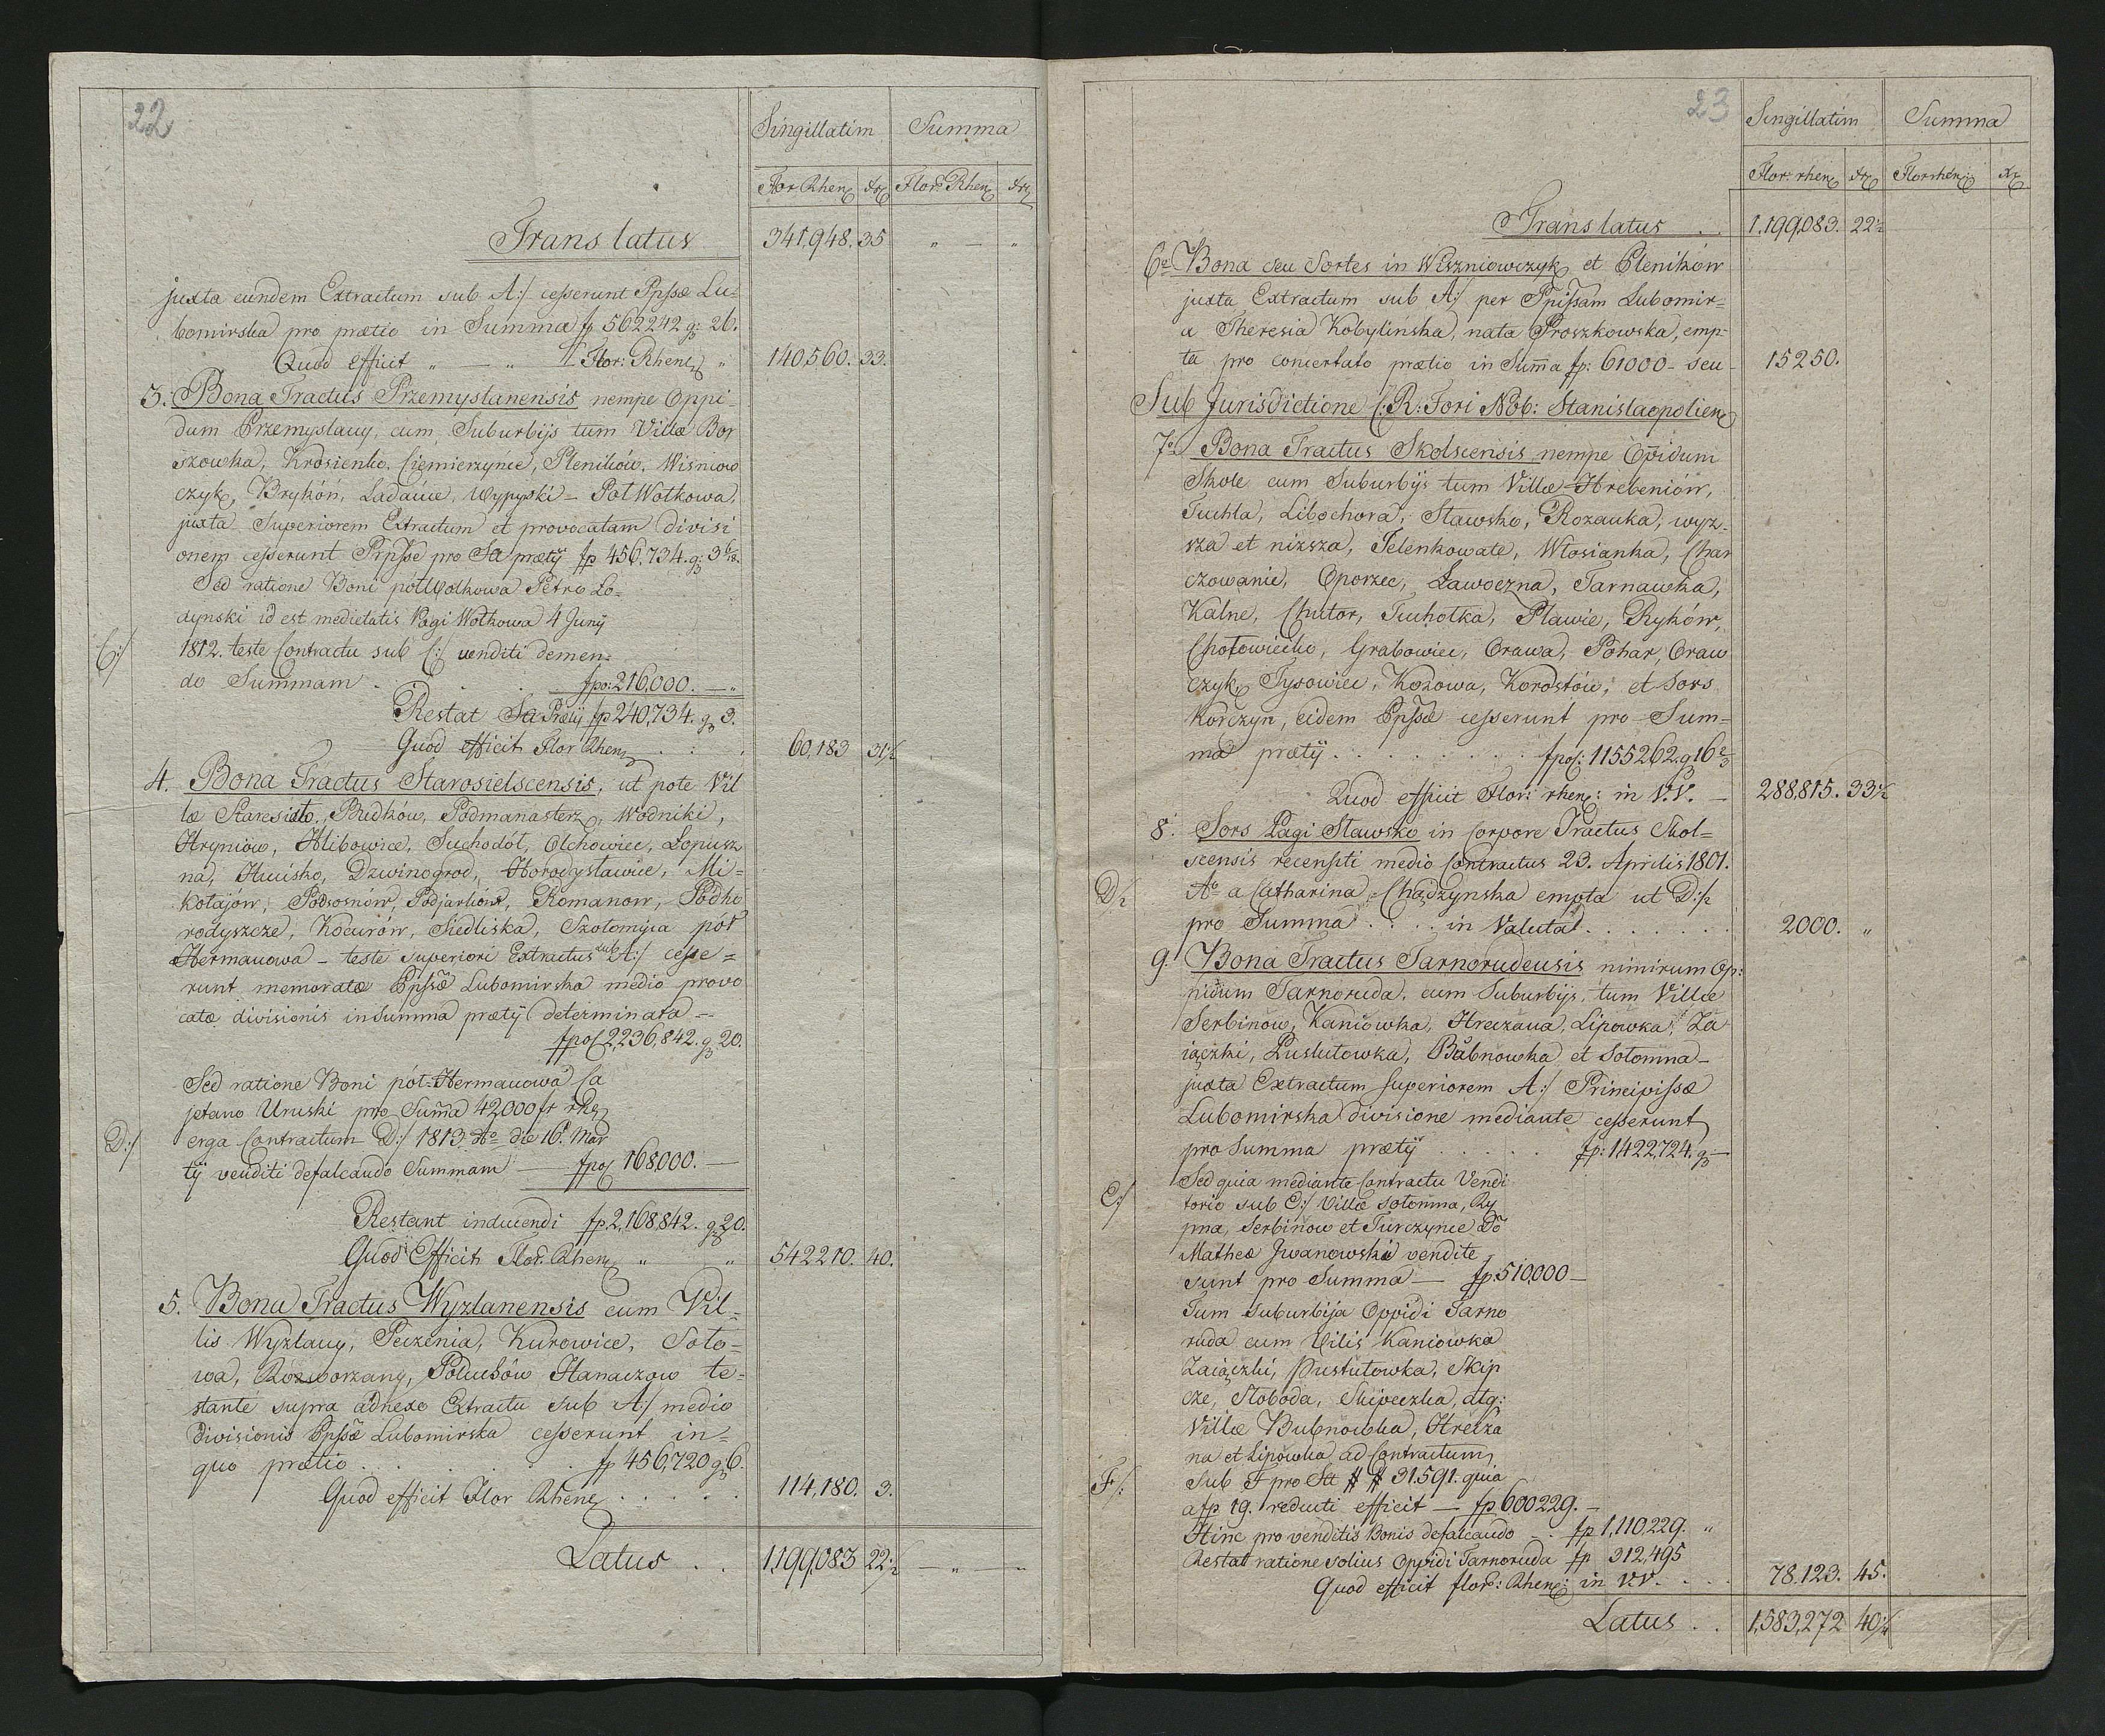 22
Singillatim Summa
Flor Rhen Xr Flor: Rhen Xr
Translatus 341,948. 35 " — "
juxta eundem Extractum sub A:/ cesserunt Ppssæ Lu=
bomirska pro prætio in Summa fp 562242 g: 26.
Quod efficit " — " Flor: Rhen " 140,560. 33.
3. Bona Tractus Przemyslanensis nempe Oppi-
dum Przemyslany, cum Suburbijs tum Villæ Bor
szowka, Krosienko, Ciemierzynce, Plenikow, Wisniow
czyk, Brykoń, Ladańce, Wypyski – Poł Wołkowa,
juxta Superiorem Extractum et provocatam divisi
onem cesserunt Prpssæ pro Sa prætij fp 456,734. g: 3 6/18.
Sed ratione Boni poł Wołkowa Petro Lo=
dynski id est medietatis Pagi Wołkowa 4 Junij
C:/ 1812. teste Contractu sub C:/ venditi demen=
do Summam . . . fpo: 216,000. — "
Restat Sa Prætij fp 240,734. g 3.
Quod efficit Flor Rhen . : . 60,183 31½
4. Bona Tractus Starosielscensis, ut pote Vil
læ Staresiolo, Budków, Podmanasterz, Wodniki,
Hryniów, Hlibowice, Suchodół, Olchowiec, Łopusz
na, Huisko, Dzwinogrod, Horodysławice, Mi=
kołajów, Podsosnów, Podjarków, Romanow, Podho
rodyszcze, Kocurów, Siedliska, Szołomyia pół
Hermanowa – teste superiori Extractus sub A:/ cesse=
runt memoratæ Ppssæ Lubomirska medio provo
catæ divisionis in Summa prætij determinata —
fpo 2,236,842. g 20.
Sed ratione Boni pół-Hermanowa Ca
jetano Uruski pro Suma 42000 fr rhe
D:/ erga Contractum D:/ 1813 Ao die 16 Mar
tij venditi defalcando Summam — fpo 168,000. —
Restant inducendi fp 2,168,842. g 20.
Quod Efficit Flor: Rhen " " 542210. 40.
5. Bona Tractus Wyzlanensis cum Vil-
lis Wyzłany, Peczenia, Kurowice, Soło-
wa, Rozworzany, Połuchów Hanaczow te-
stante supra adnexo Extractu sub A:/ medio
divisionis Ppssæ Lubomirska cesserunt in-
quo prætio . . . . fp 456,720 g 6.
Quod efficit Flor Rhene . . . . 114,180. 3.
Latus . . 1,199,083 22½ — " — "
23
Singillatim Summa
Flor: rhen Xr Flor rhen: Xr
Translatus . . 1,199,083. 22½
6o Bona seu Sortes in Wiszniowczyk et Pleników
juxta Extractum sub A:/ per Ppissam Lubomir=
a Theresia Kobylińska, nata Proszkowska, emp-
ta pro concertato prætio in Suma fp: 61000 – seu 15250.
Sub Jurisdictione C: R: Fori Nob: Stanislaopolien
7o Bona Tractus Skolscensis nempe Opidum
Skole cum Suburbijs tum Villæ Hrebeniów,
Tuchla, Libochora, Sławsko, Rozanka, wyz-
sza et nizsza, Jelenkowate, Włosianka, Char
czowanie, Oporzec, Ławoczna, Tarnawka,
Kalne, Chutor, Tucholka, Pławie, Ryków,
Chołowiecko, Grabowiec, Orawa, Pohar, Oraw
czyk, Tysowiec, Kozowa, Korostów, et Sors
Korczyn, eidem Ppssæ cesserunt pro – Sum=
ma prætij . . . . . . fpo: 1155262. g 16 2/3
Quod efficit Flor: rhen: in V. V. – 288,815. 33½
8. Sors Pagi Sławsko in Corpore Tractus Skol=
scensis recensiti medio Contractus 23. Aprilis 1801.
D/2 Ao a Catharina Chądzynska empta ut D:/2
pro Summa . . . . in Valuta . . . . . 2000. "
9. Bona Tractus Tarnorudensis nimirum Op:
pidum Tarnoruda, cum Suburbijs, tum Villæ
Serbinow, Kaniowka, Hreczana, Lipowka, Za
iączki, Puslutowka, Bubnowka et Sołomna –
juxta Extractum superiorem A:/ Principissæ
Lubomirska divisione mediante cesserunt
pro Summa prætij . . . . . fp: 1422,724. g –
Sed quia mediante Contractu Vendi
E:/ torio sub E:/ Villæ Sołomna, Ry
pna, Serbinow et Turczynce Do
Matheo Jwanowski vendite
sunt pro Summa — fp 510,000 –
Tum suburbija Oppidi Tarno
ruda cum Vilis Kaniowka
Zaiączki, Pustułowka, Skip
cze, Słoboda, Skipeczka, atq:
Villæ Bubnowka, Hrecza
na et Lipowka ad Contractum
F/: Sub F pro Sa # # 31.591. quia
a fp 19. reducti efficit — fp 600229. –
Hinc pro venditis Bonis defalcando – . fp 1,110,229. "
Restat ratione solius Oppidi Tarnoruda fp 312,495
Quod efficit flor: Rhen: in V.V. . . . 78.123. 45.
Latus . . 1,583,272 40¼